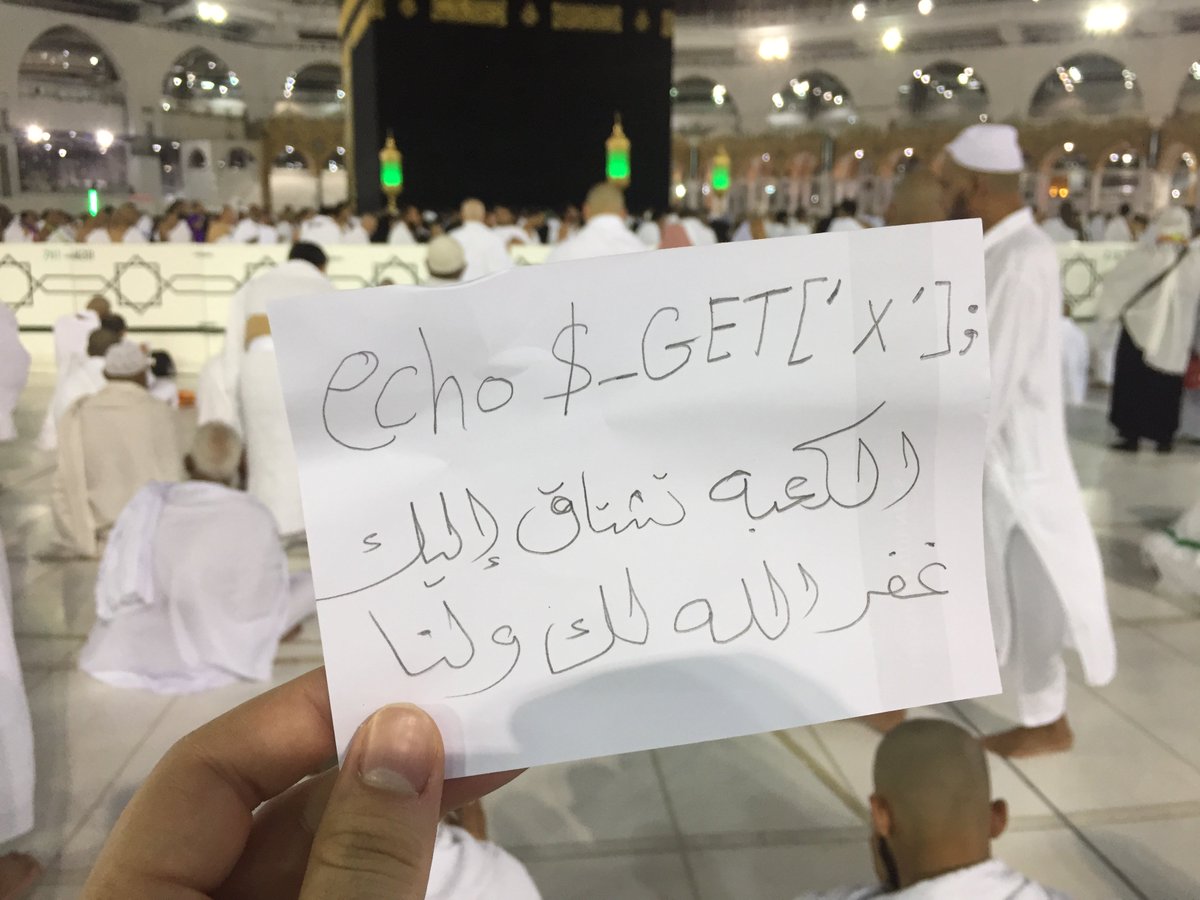 echo $_GET['x'];
الكعبه تشتاق إليك
غفر الله لك ولنا